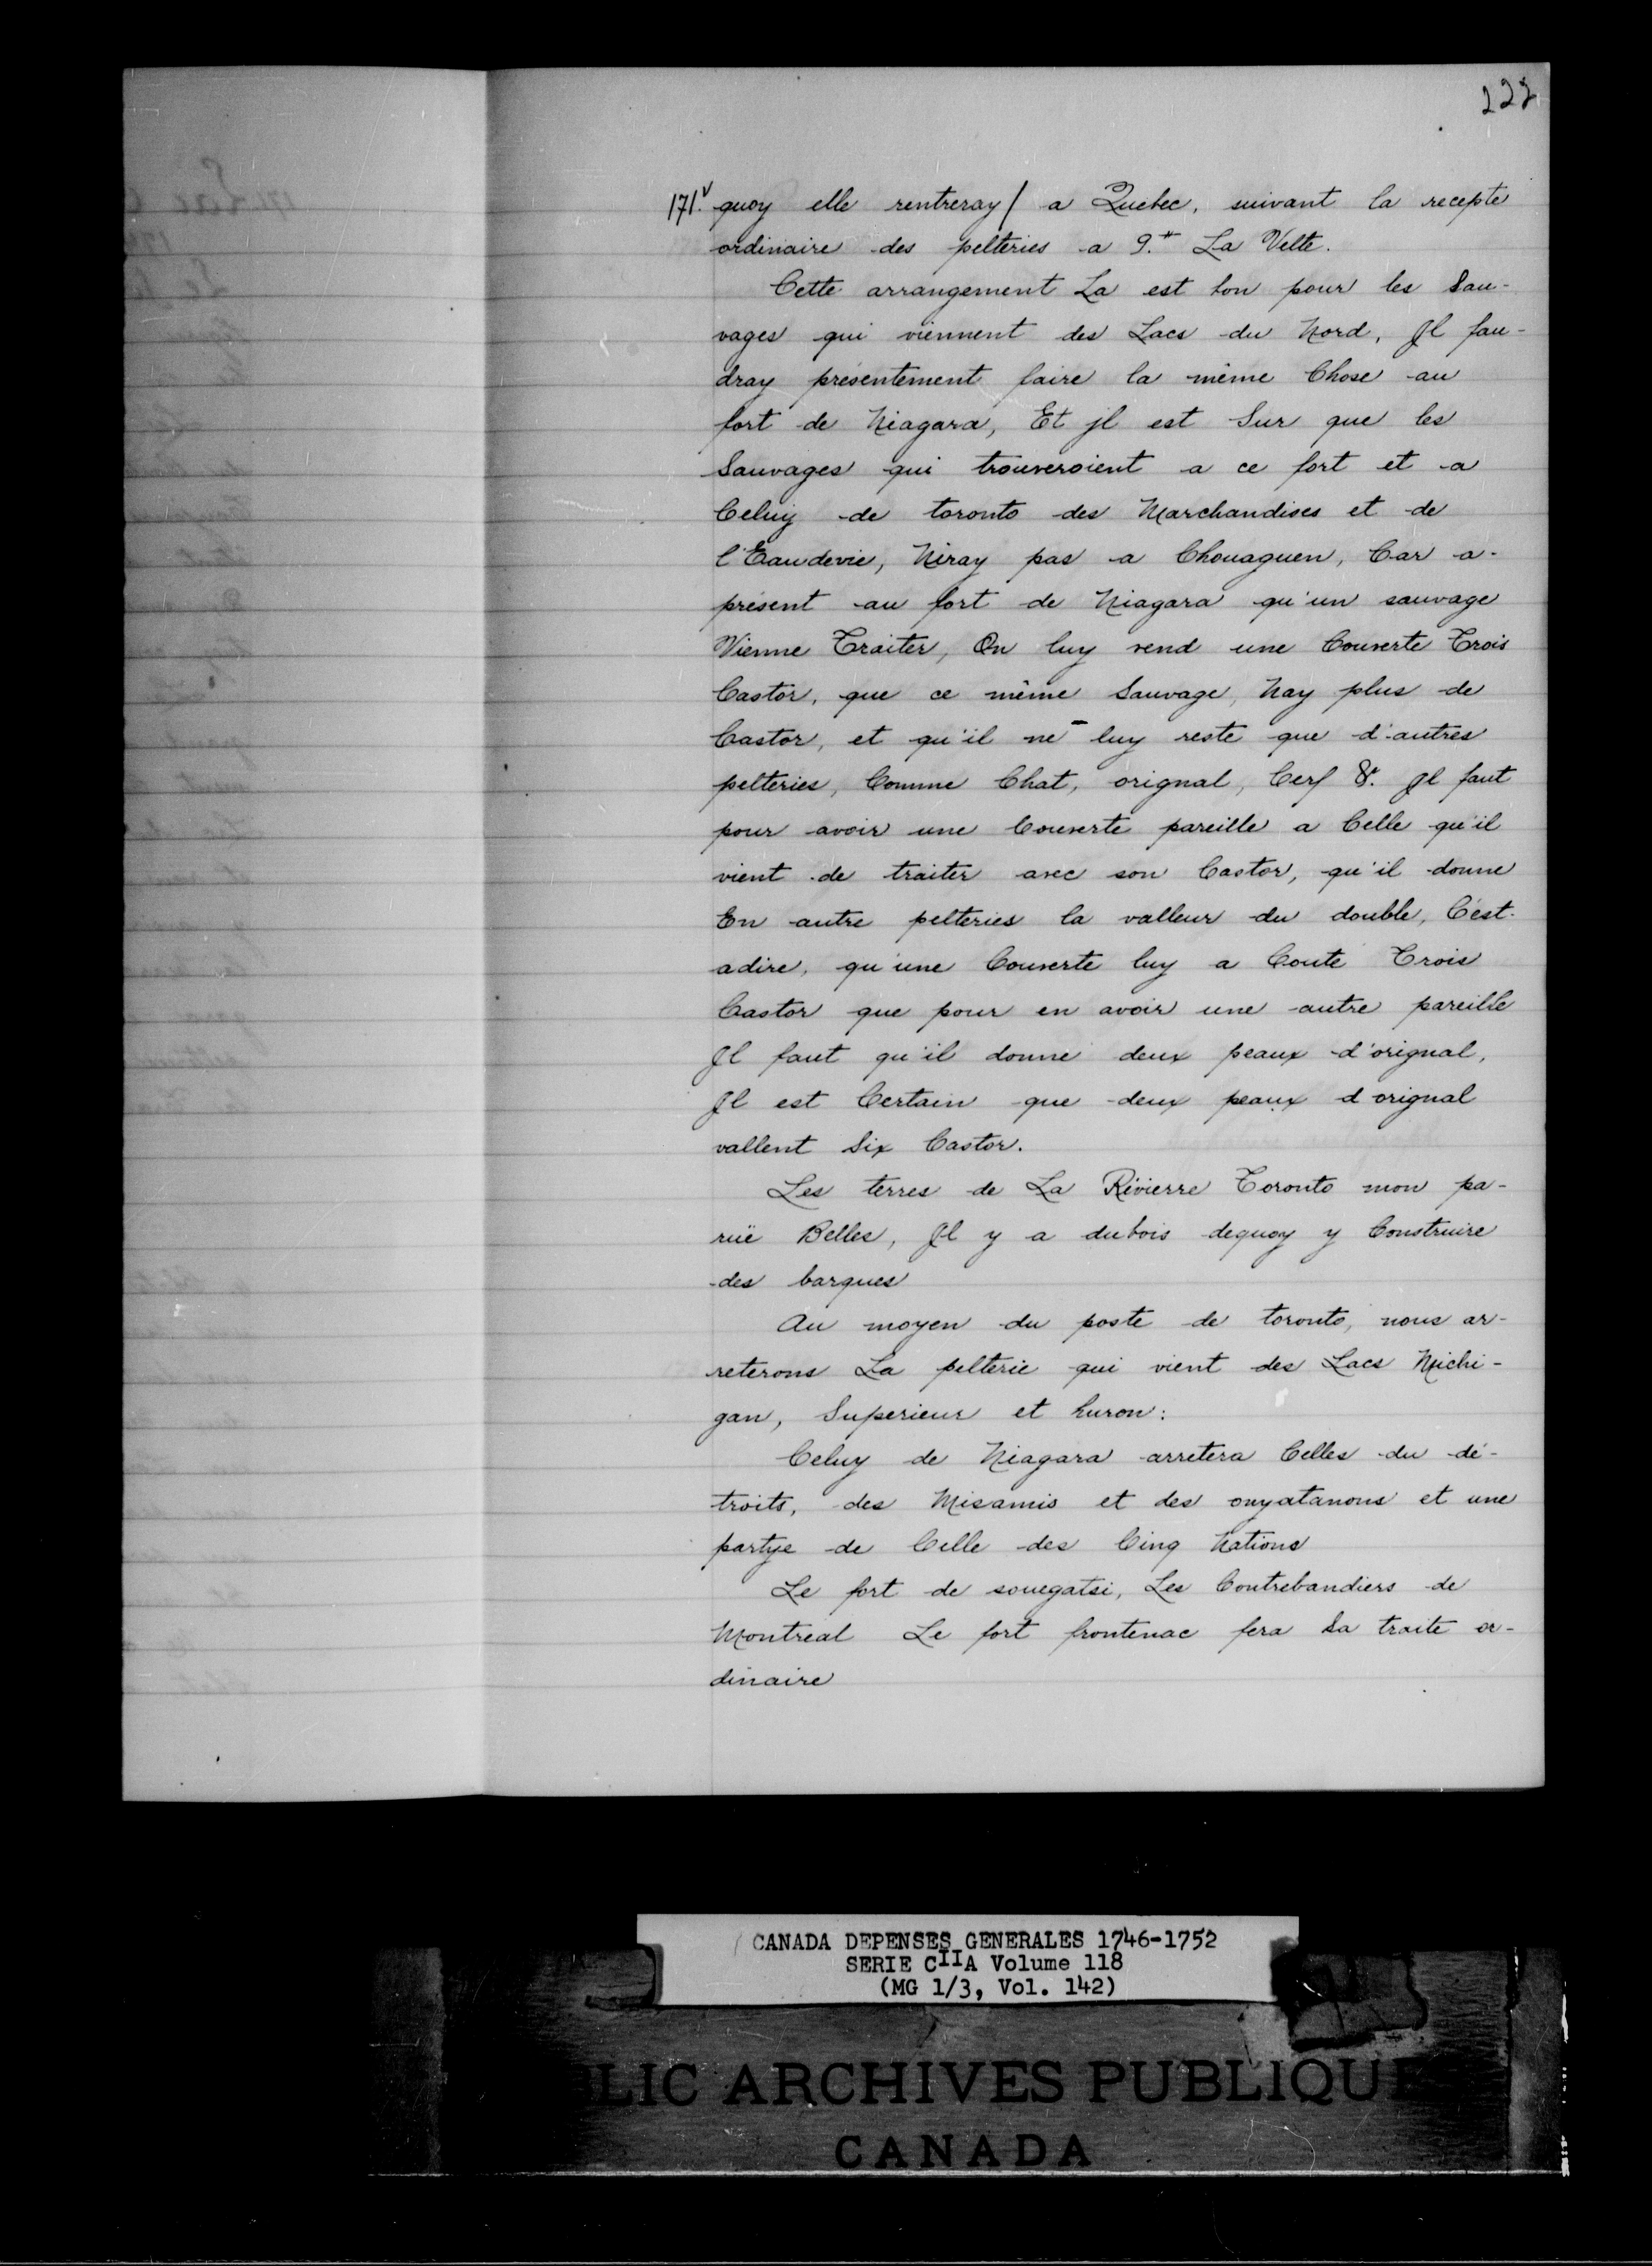 222
171.v quoy elle rentreray/ a Quebec, suivant la recepte
ordinaire des pelteries a 9.# La Velte.
Cette arrangement La est bon pour les Sau-
vages qui viennent des Lacs du Nord, Jl fau-
dray présentement faire la même Chose au
fort de Niagara, Et jl est Sur que les
Sauvages qui trouveroient a ce fort et a
Celuy de toronto des Marchandises et de
l'Eaudevie, Niray pas a Chouaguen, Car a-
présent au fort de Niagara qu'un sauvage
Vienne Traiter, On luy vend une Couverte Trois
Castor, que ce même Sauvage, Nay plus de
Castor, et qu'il ne luy reste que d'autres
pelteries, Comme Chat, orignal, Cerf &. Jl faut
pour avoir une Couverte pareille a Celle qu'il
vient de traiter avec son Castor, qu'il donne
En autre pelteries la valleur du double, C'est-
adire, qu'une Couverte luy a Couté Trois
Castor que pour en avoir une autre pareille
Jl faut qu'il donne deux peaux d'orignal,
Jl est Certain que deux peaux d orignal
vallent Six Castor.
Les terres de La Révierre Toronto mon pa-
ruë Belles, Jl y a dubois dequoy y Construire
des barques
Au moyen du poste de toronto, nous ar-
reterons La pelterie qui vient des Lacs Michi-
gan, Superieur et huron:
Celuy de Niagara arretera Celles du dé-
troits, des Misamis et des ouyatanons et une
partye de Celle des Cinq Nations
Le fort de souegatsi, Les Contrebandiers de
Montreal Le fort frontenac fera Sa traite or-
dinaire
CANADA DEPENSES GENERALES 1746-1752
SERIE CIIA Volume 118
(MG 1/3, Vol. 142)
BLIC ARCHIVES PUBLIQUE
CANADA